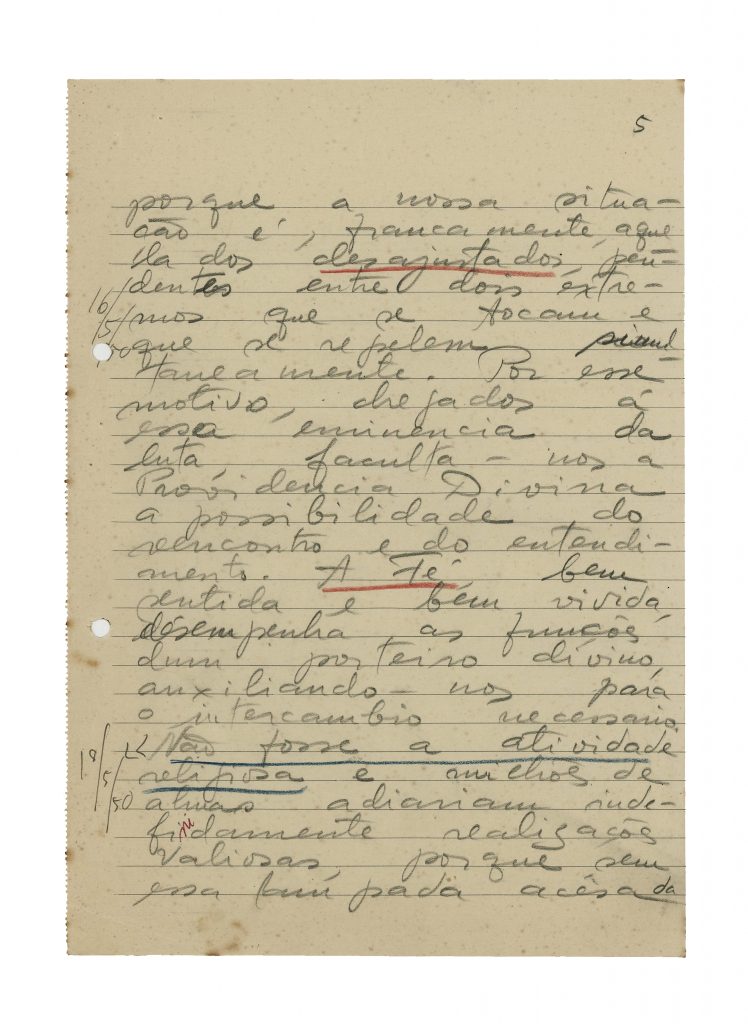 5
porque a nossa situa-
cão é, francamente, aque
lla dos desajustados, pen-
dentes entre dois éxtre-
mos que se tocam e
16/5/50
que se repelem simul-
taneamente. Por esse
motivo, chegados á
essa eminencia da
luta, faculta-nos a
Providencia Divina
a possibilidade do
reencontro e do entendi-
mento. A Fé bem
sentida e bem vivida,
desempenha as funcões
dum porteiro divino,
auxiliando-nos para
o intercambio necessario.
18/5/50
Não fosse a atividade
religiosa e milhões de
almas adiariam inde-
finidamente realizações
valiosas, porque sem
essa lampada acêsa da